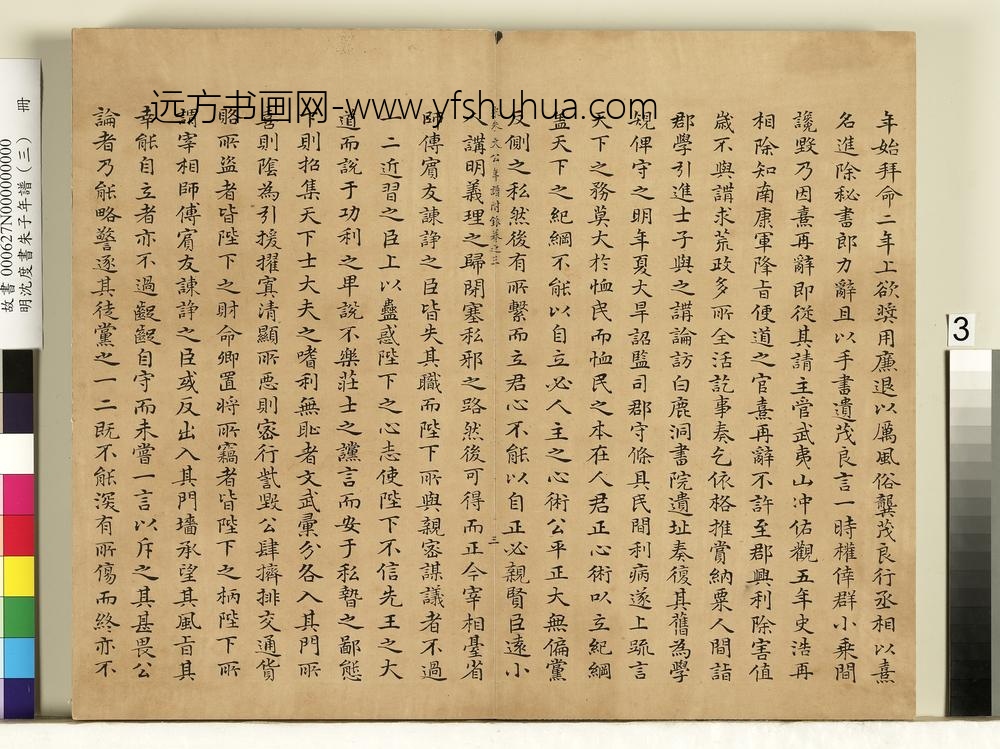 年始拜命二年上欲奬用廉退以厲風俗龔茂良行丞相以熹
名進除秘書郎力辭且以手書遺茂良言一時權倖群小乗間
讒毀乃因熹再辭即従其請主管武夷山冲佑觀五年史浩再
相除知南康軍降旨便道之官熹再辭不許至郡興利除害值
歳不與講求荒政多所全活訖事奏乞依格推賞納粟人間詣
郡學引進士子與之講論訪白鹿洞書院遺址奏復其舊為學
規俾守之明年夏大旱詔監司郡守條其民間利病遂上疏言
天下之務莫大於恤民而恤民之本在人君正心術以立紀綱
盖天下之紀綱不能以自立必人主之心術公平正大無偏黨
反側之私然後有所繫而立君心不能以自正必親賢臣遠小
朱文公年譜附録卷之三
三
人講明義理之歸閉塞私邪之路然後可得而正今宰相臺省
師傅賓友諫諍之臣皆失其職而陛下所與親密謀議者不過
一二近習之臣上以蠱惑陛下之心志使陛下不信先王之大
道而說于功利之卑說不樂莊士之讜言而安于私暬之鄙態
下則招集天下士大夫之嗜利無恥者文武彙分各入其門所
喜則陰為引援擢寘清顯所惡則密行訾毀公肆擠排交通貨
賂所盜者皆陛下之財命卿置将所竊者皆陛下之柄陛下所
謂宰相師傅賓友諫諍之臣或反出入其門墻承望其風旨其
幸能自立者亦不過齪齪自守而未嘗一言以斥之其甚畏公
論者乃能略警逐其徒黨之一二既不能深有所傷而終亦不
远方书画网-www.yfshuhua.com
冊
故書 000627N000000000
明沈度書朱子年譜（三）
3